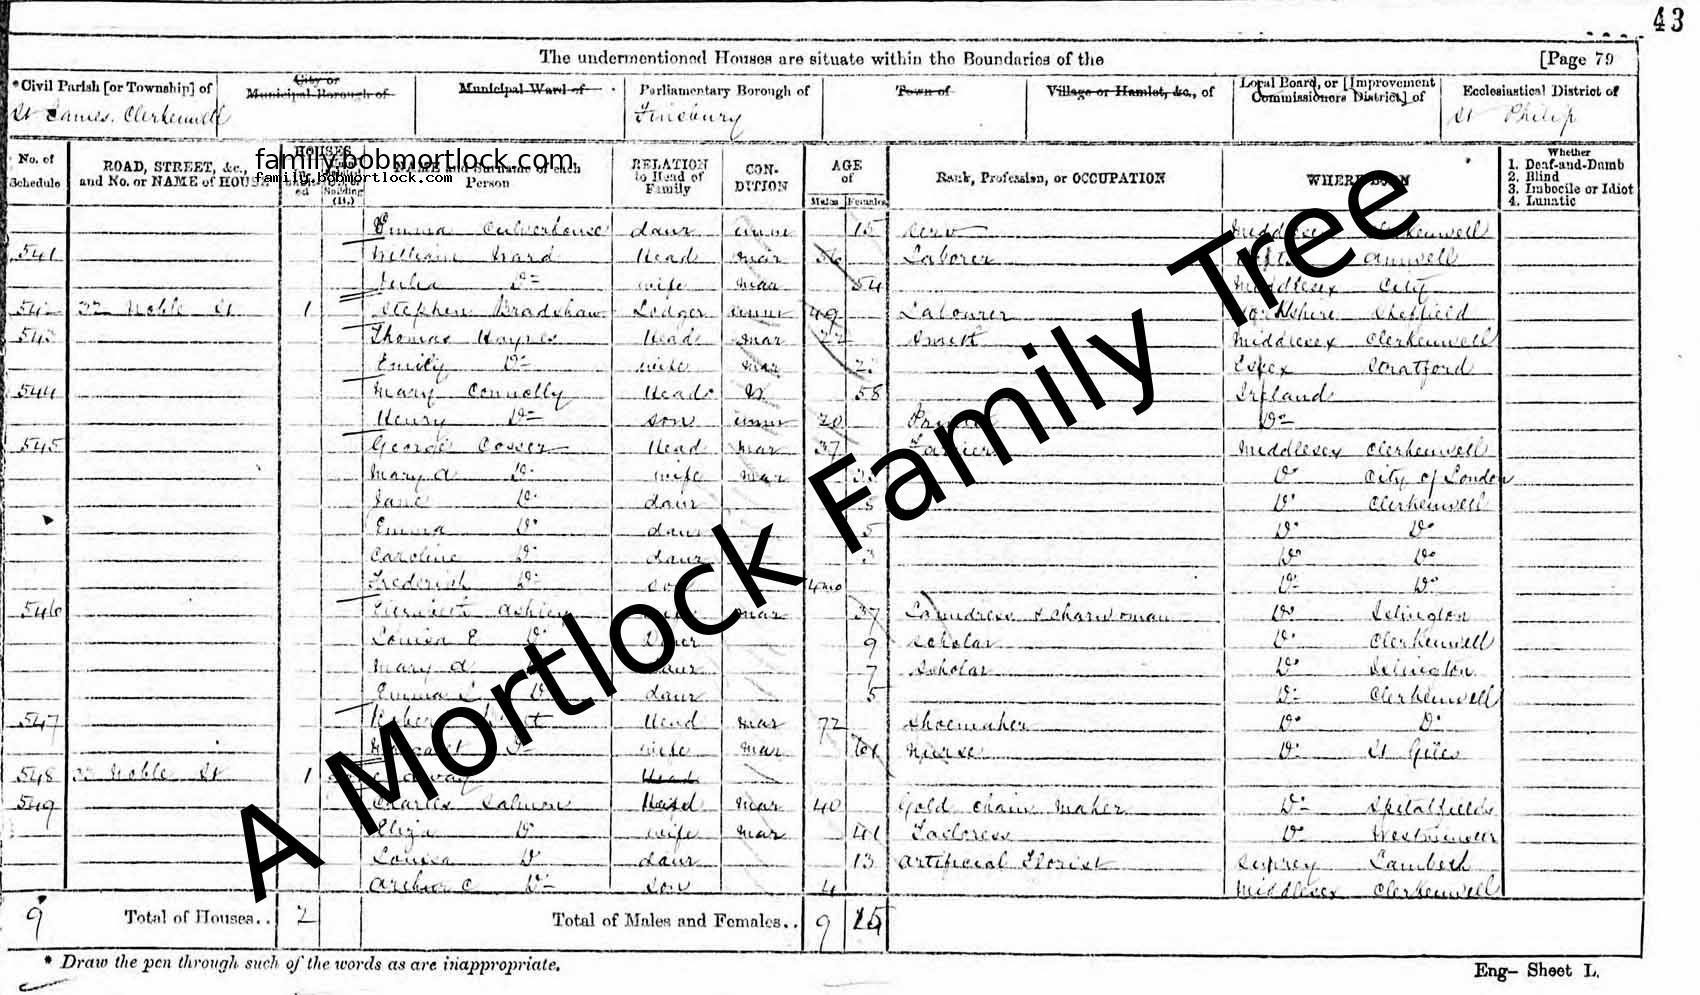 43
The undermentioned Houses are situate within the Boundaries of the [Page 79
*Civil Parish [or Township] of City or Municipal Borough of Municipal Ward of Parliamentary Borough of Town of Village or Hamlet, &c., of Local Board, or [Improvement Commissioners District] of Ecclesiastical District of
St James Clerkenwell Finsbury St Philip
No. of Schedule ROAD, STREET, &c., and No. or NAME of HOUSE HOUSES NAME and Surname of each Person RELATION to Head of Family CON-DITION AGE of Males Females Rank, Profession, or OCCUPATION WHERE BORN Whether
1. Deaf-and-Dumb
2. Blind
3. Imbecile or Idiot
4. Lunatic
family.bobmortlock.com
family.bobmortlock.com
Emma Culverhouse daur unm 15 Serv Middlesex Clerkenwell
541 William Ward Head mar 56 Laborer Amwell
Julia Do wife mar 54 Middlesex City
542 32 Noble St 1 Stephen Bradshaw Lodger unm 49 Labourer Yorkshire Sheffield
543 Thomas Haynes Head mar 22 Smith Middlesex Clerkenwell
Emily Do wife mar Essex Stratford
544 Mary Connolly Head W 58 Ireland
Henry Do son unm 20 Do
545 George Cosser Head mar 37 Middlesex Clerkenwell
Mary A Do wife mar Do City of London
Jane Do daur Do Clerkenwell
Emma Do daur 5 Do Do
Caroline Do daur 3 Do Do
Frederick Do son 4mo Do Do
546 Elizabeth Ashley mar 37 Laundress & Charwoman Do Islington
Louisa E Do Daur 9 Scholar Do Clerkenwell
Mary A daur 7 Scholar Do Islington
Emma Do daur 5 Do Clerkenwell
547 Robert Head mar 72 Shoemaker Do Do
Margaret Do wife mar 61 Nurse Do St Giles
548 Noble St 1 away Head
549 Charles Salmon Head mar 40 Gold Chain Maker Do Spitalfields
Eliza Do wife mar 41 Tailoress Do Westminster
Louisa Do daur 13 Artificial Florist Surrey Lambeth
Arthur C Do son 4 Middlesex Clerkenwell
9 Total of Houses.. 2 Total of Males and Females.. 9 15
* Draw the pen through such of the words as are inappropriate.
Eng- Sheet L.
A Mortlock Family Tree